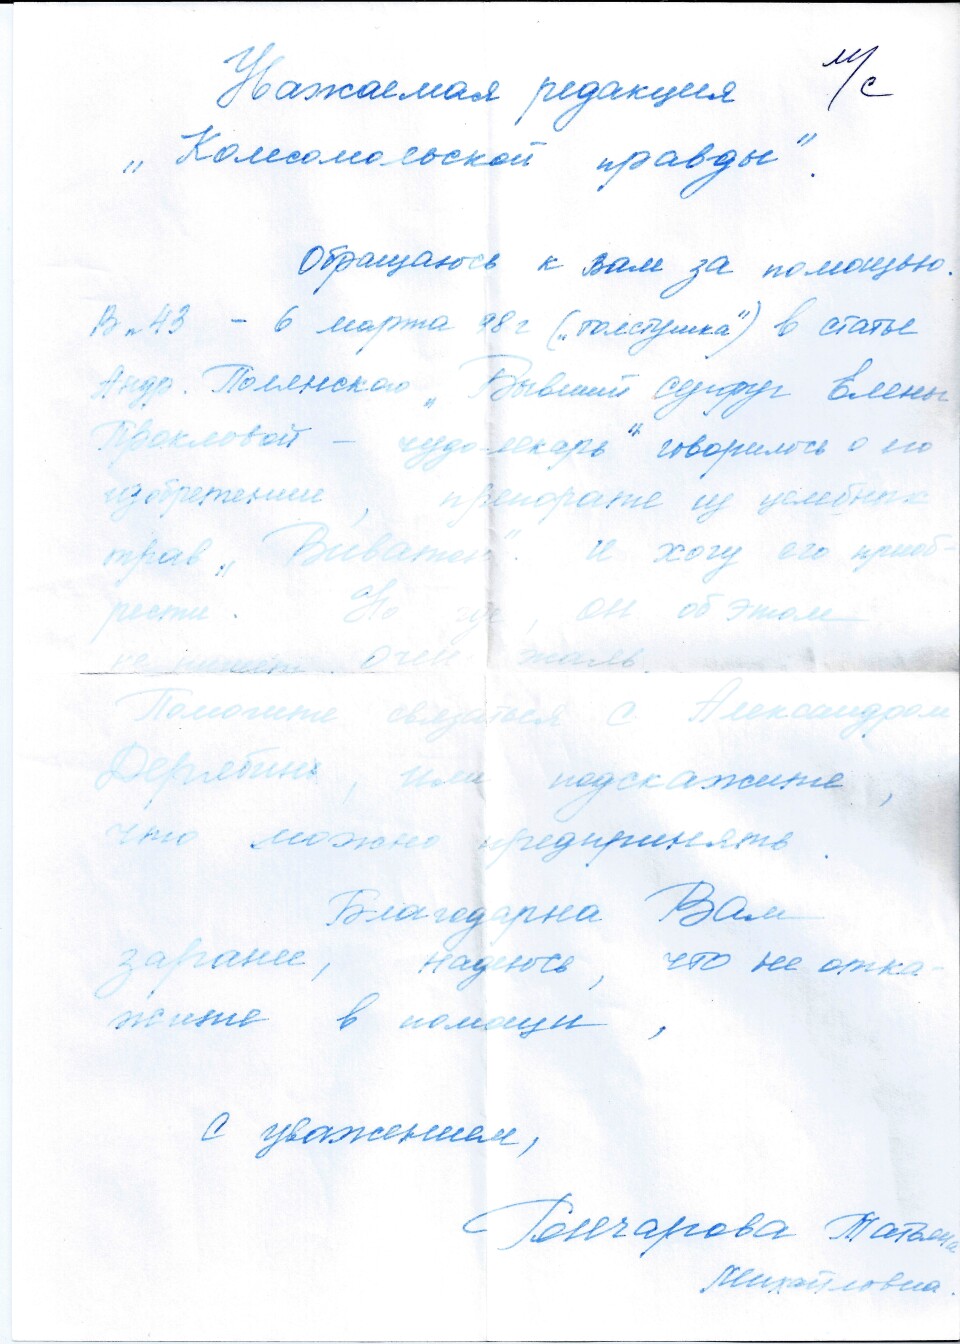 м/с
Уважаемая редакция
„Комсомольской правды".
Обращаюсь к вам за помощью.
В „43 - 6 марта 98г („толстушка") в статье
Андр. Полянского „Бывший супруг Елены
Прокловой - чудо-лекарь" говорилось о его
изобретении, препарате из целебных
трав „Виватон". И хочу его приоб-
рести. Но, он об этом
не пишет. Очень жаль.
Помогите связаться с Александром
Дерябиным, или подскажите,
что можно предпринять.
Благодарна Вам
заранее, надеюсь, что не отка-
жите в помощи,
С уважением,
Гончарова Татьяна
Михайловна.